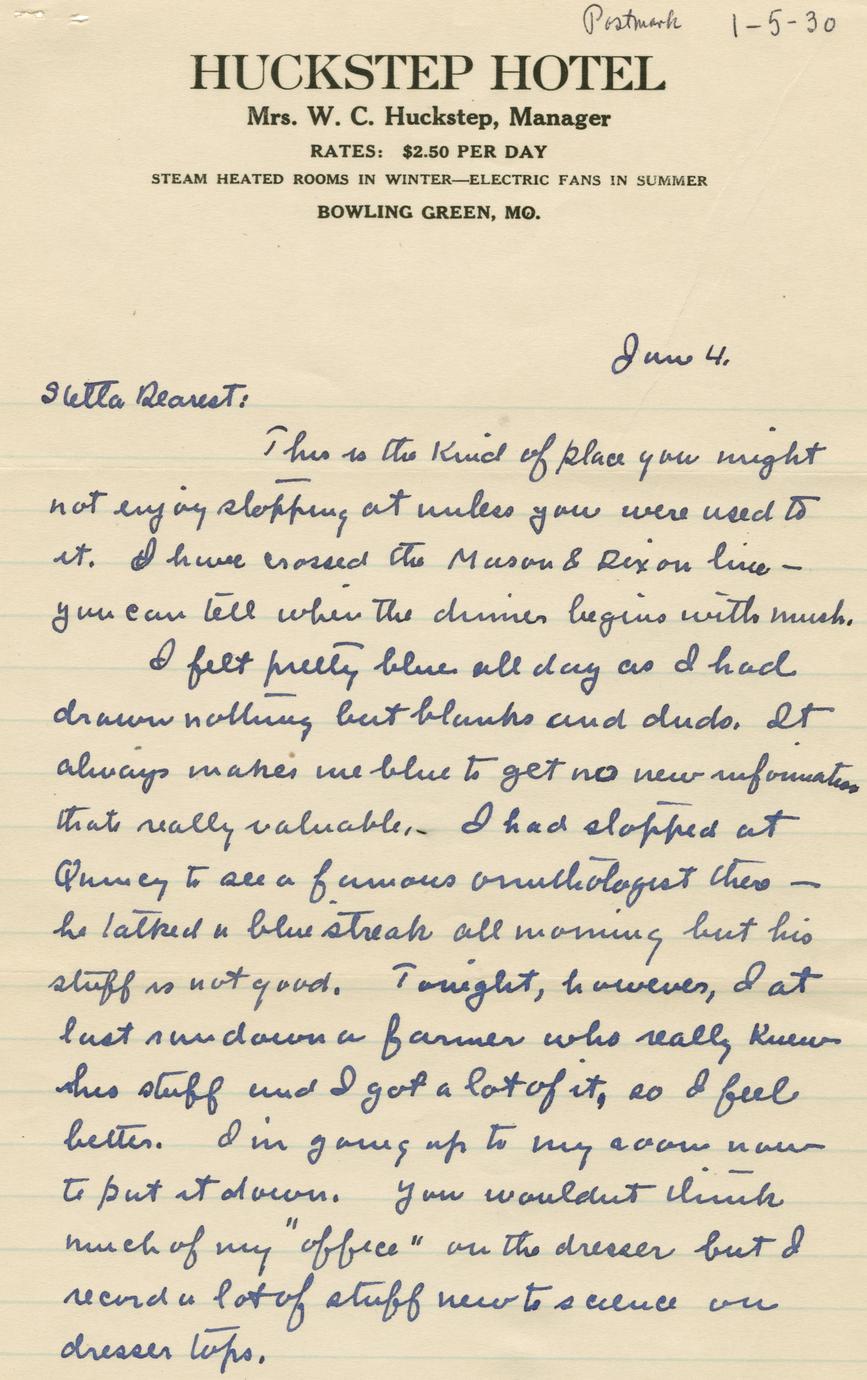 Postmark 1-5-30
HUCKSTEP HOTEL
Mrs. W. C. Huckstep, Manager
RATES: $2.50 PER DAY
STEAM HEATED ROOMS IN WINTER—ELECTRIC FANS IN SUMMER
BOWLING GREEN, MO.
Jan 4.
Stella Dearest:
This is the Kind of place you might
not enjoy stopping at unless you were used to
it. I have crossed the Mason & Dixon line –
you can tell when the dinner begins with mush.
I felt pretty blue all day as I had
drawn nothing but blanks and duds. It
always makes me blue to get no new information
thats really valuable. – I had stopped at
Quincy to see a famous ornithologist there –
he talked a blue streak all morning but his
stuff is not good. Tonight, however, I at
last run down a farmer who really Knew
his stuff and I got a lot of it, so I feel
better. I'm going up to my room now
to put it down. You wouldnt think
much of my "office" on the dresser but I
record a lot of stuff new to science on
dresser tops.